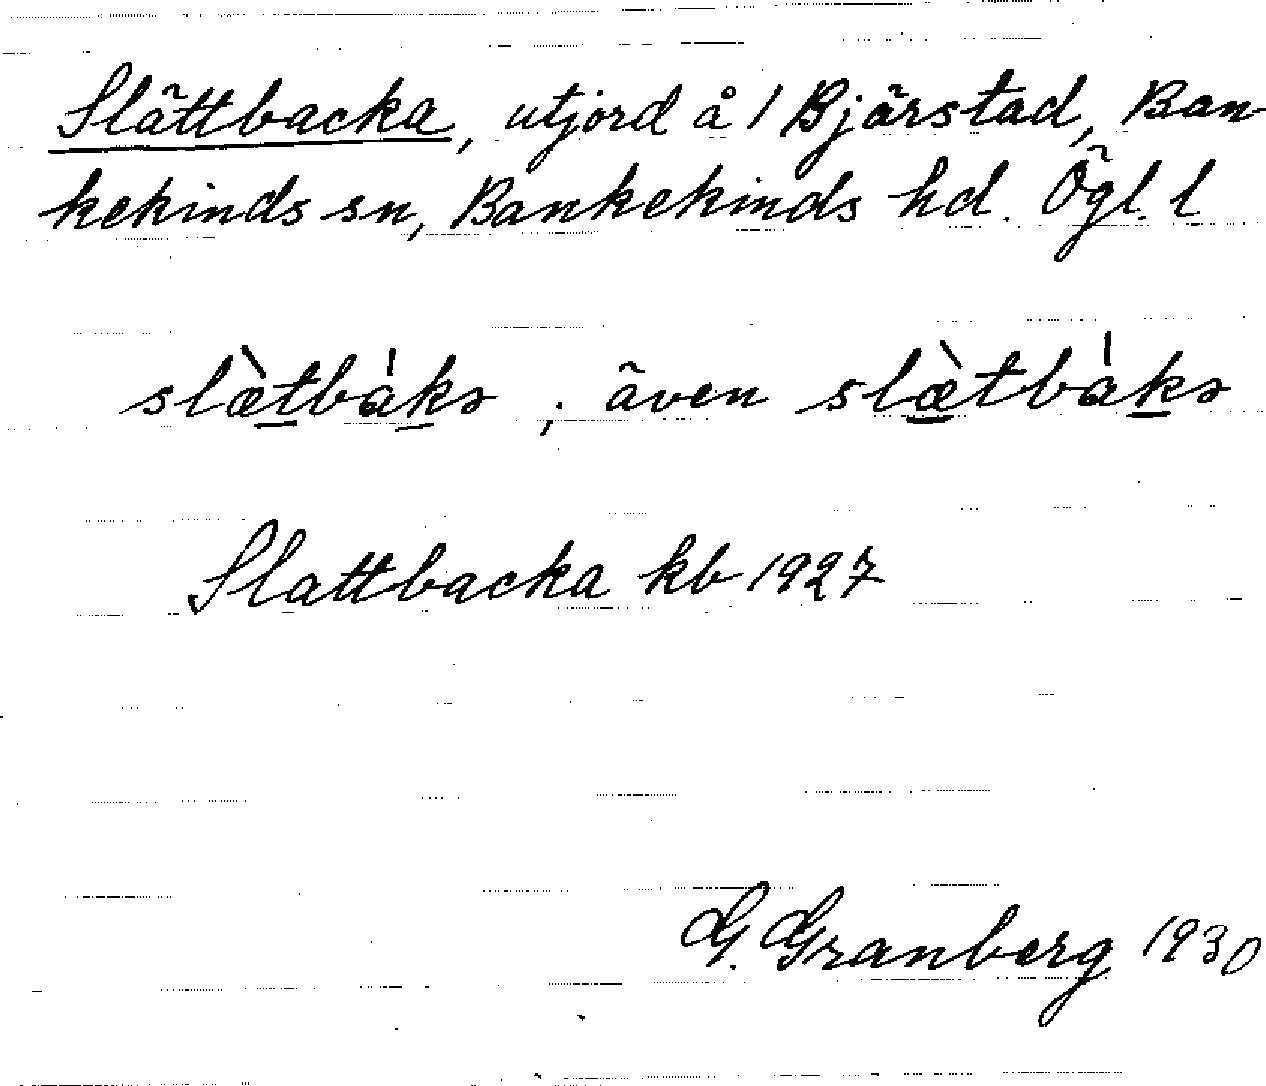 Slättbacka, utjord å 1 Bjärstad, Ban-
kekinds sn, Bankekinds hd. Ögl. l
slæ̀tbàkə ; även slæ̀tbàkə
Slattbacka kb 1927
G. Granberg 1930